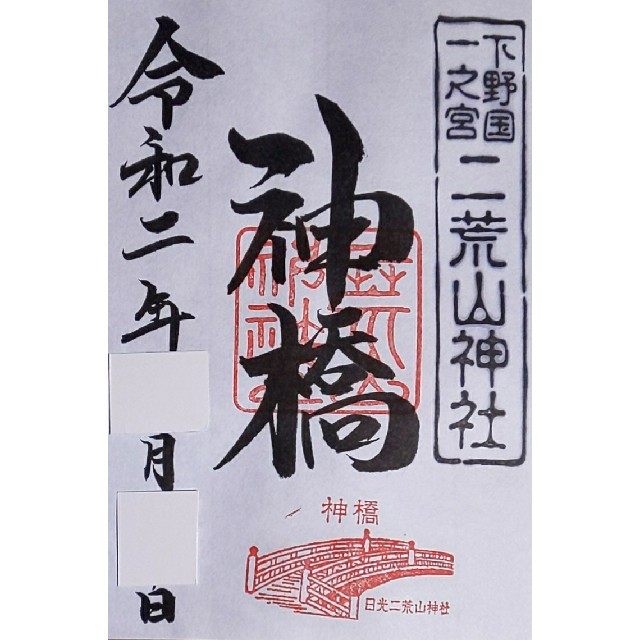 下野国
一之宮
二荒山神社
神橋
令和二年
月
日
神橋
日光二荒山神社